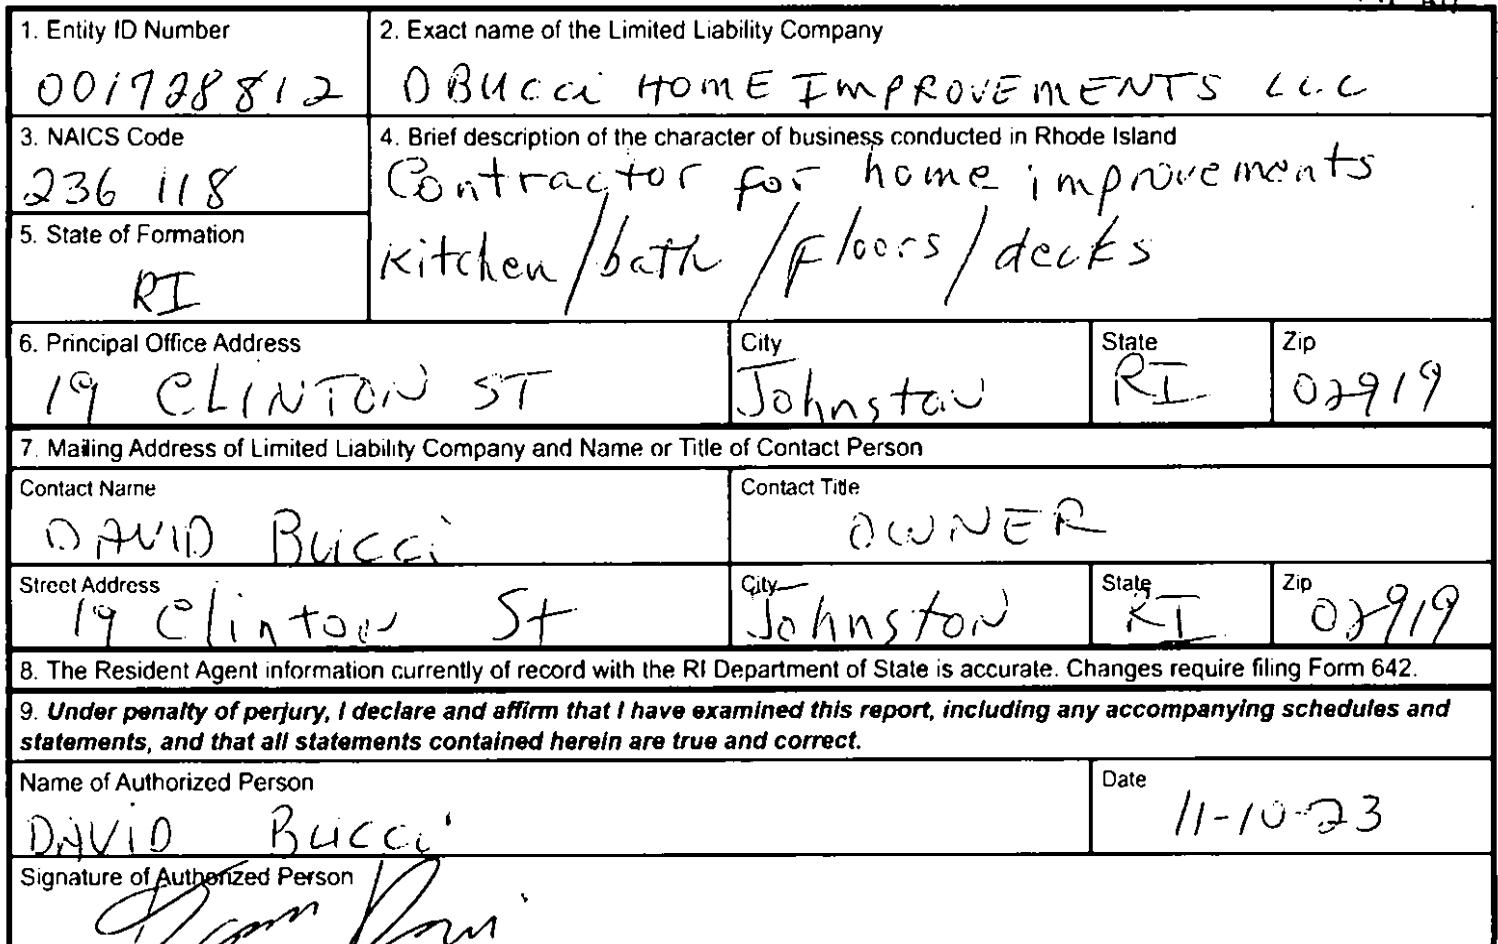 1. Entity ID Number
001728812
2. Exact name of the Limited Liability Company
DBUCCi HOME IMPROVEMENTS LLC
3. NAICS Code
236 118
4. Brief description of the character of business conducted in Rhode Island
Contractor for home improvements
Kitchen/bath/Floors/decks
5. State of Formation
RI
6. Principal Office Address
19 CLINTON ST
City
Johnston
State
RI
Zip
02919
7. Mailing Address of Limited Liability Company and Name or Title of Contact Person
Contact Name
DAVID Bucci
Contact Title
OWNER
Street Address
19 Clinton St
City
Johnston
State
RI
Zip
02919
8. The Resident Agent information currently of record with the RI Department of State is accurate. Changes require filing Form 642.
9. Under penalty of perjury, I declare and affirm that I have examined this report, including any accompanying schedules and
statements, and that all statements contained herein are true and correct.
Name of Authorized Person
DAViD Bucci
Date
11-10-23
Signature of Authorized Person